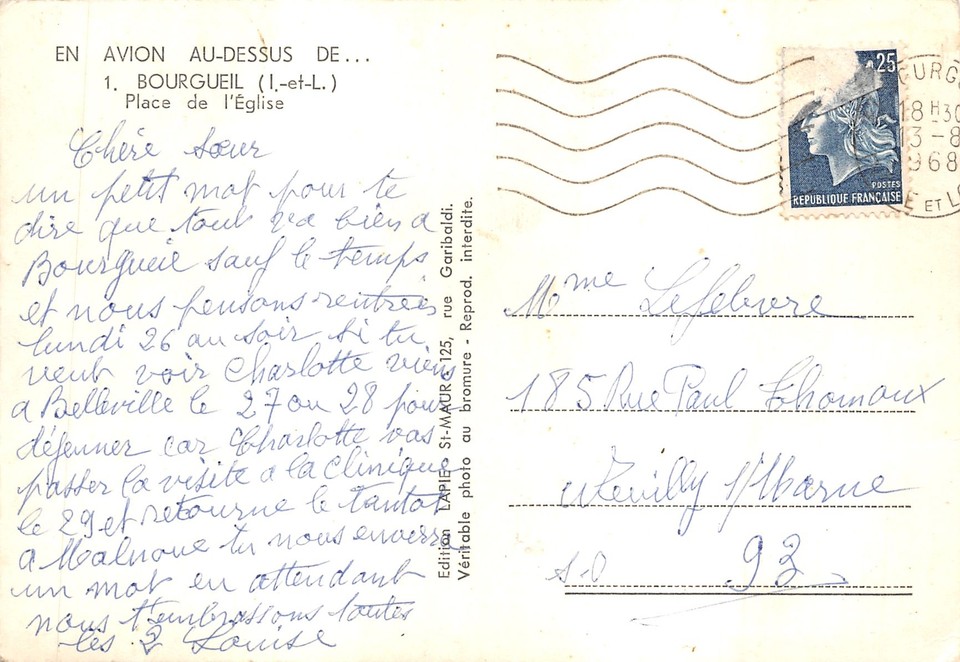 EN AVION AU-DESSUS DE...
1. BOURGUEIL (I.-et-L.)
Place de l'Église
Chère sœur
un petit mot pour te
dire que tout va bien a
Bourgueil sauf le temps
et nous pensons rentrer
lundi 26 au soir si tu
veut voir Charlotte viens
a Belleville le 27 ou 28 pour
déjeuner car Charlotte vas
passer la visite a la clinique
le 29 et retourne le tantot
a Malnoue tu nous enverra
un mot en attendant
nous t'embrassons toutes
les 2 Louise
Edition LAPIE - St-MAUR - 125, rue Garibaldi.
Véritable photo au bromure - Reprod. interdite.
25
POSTES
REPUBLIQUE FRANÇAISE
18 H 30
13 - 8
1968
ET
Mme Lefebvre
185 Rue Paul Thomoux
Neuilly s/Marne
93